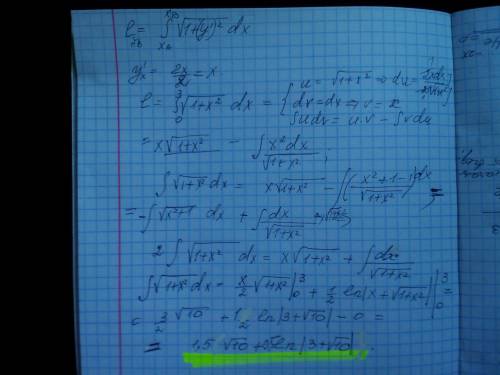 l = ∫ √1+(y')² dx
y'ₓ = 2x/2 = x
l = ∫₀³ √1+x² dx = { u = √1+x² ⇒ du = 2xdx/2√1+x²
dv = dx ⇒ v = x
∫udv = u.v − ∫vdu
= x√1+x² − ∫ x²dx/√1+x² ;
∫√1+x² dx = x√1+x² − ∫(x²+1−1)dx/√1+x² =
= −∫√x²+1 dx + ∫ dx/√1+x²
2∫√1+x² dx = x√1+x² + ∫ dx/√1+x²
∫√1+x² dx = x/2 √1+x² |₀³ + 1/2 ln|x+√1+x²| |₀³ =
= 3/2 √10 + 1/2 ln|3+√10| − 0 =
= 1,5 √10 + 0,5 ln|3+√10|.